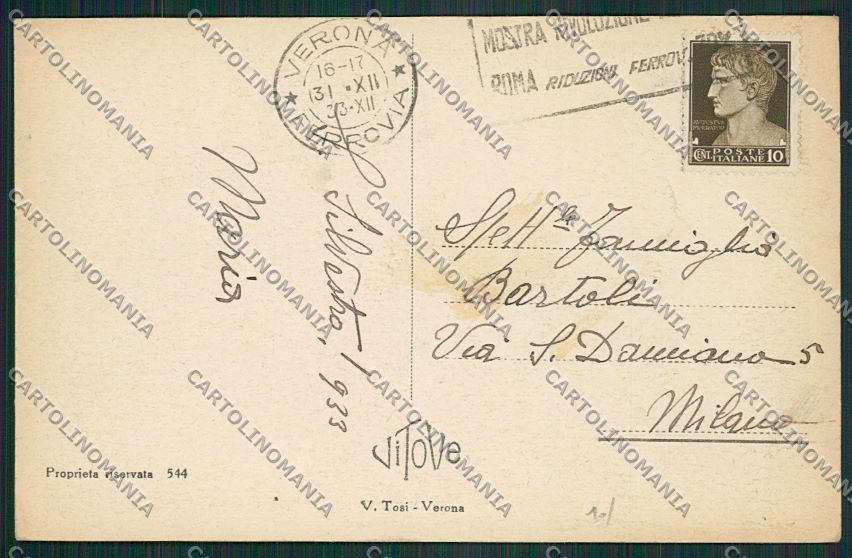 VERONA
16-17
31·XII
33·XII
FERROVIA
MOSTRA RIVOLUZIONE
ROMA RIDUZIONI FERROV
AVGVSTVS
IMPERATOR
CENT. POSTE ITALIANE 10
Maria
Silvestro, 1933
Spett.le Famiglia
Bartoli
Via S. Damiano 5
Milano
ViToVe
Proprieta riservata 544
V. Tosi - Verona
CARTOLINOMANIA